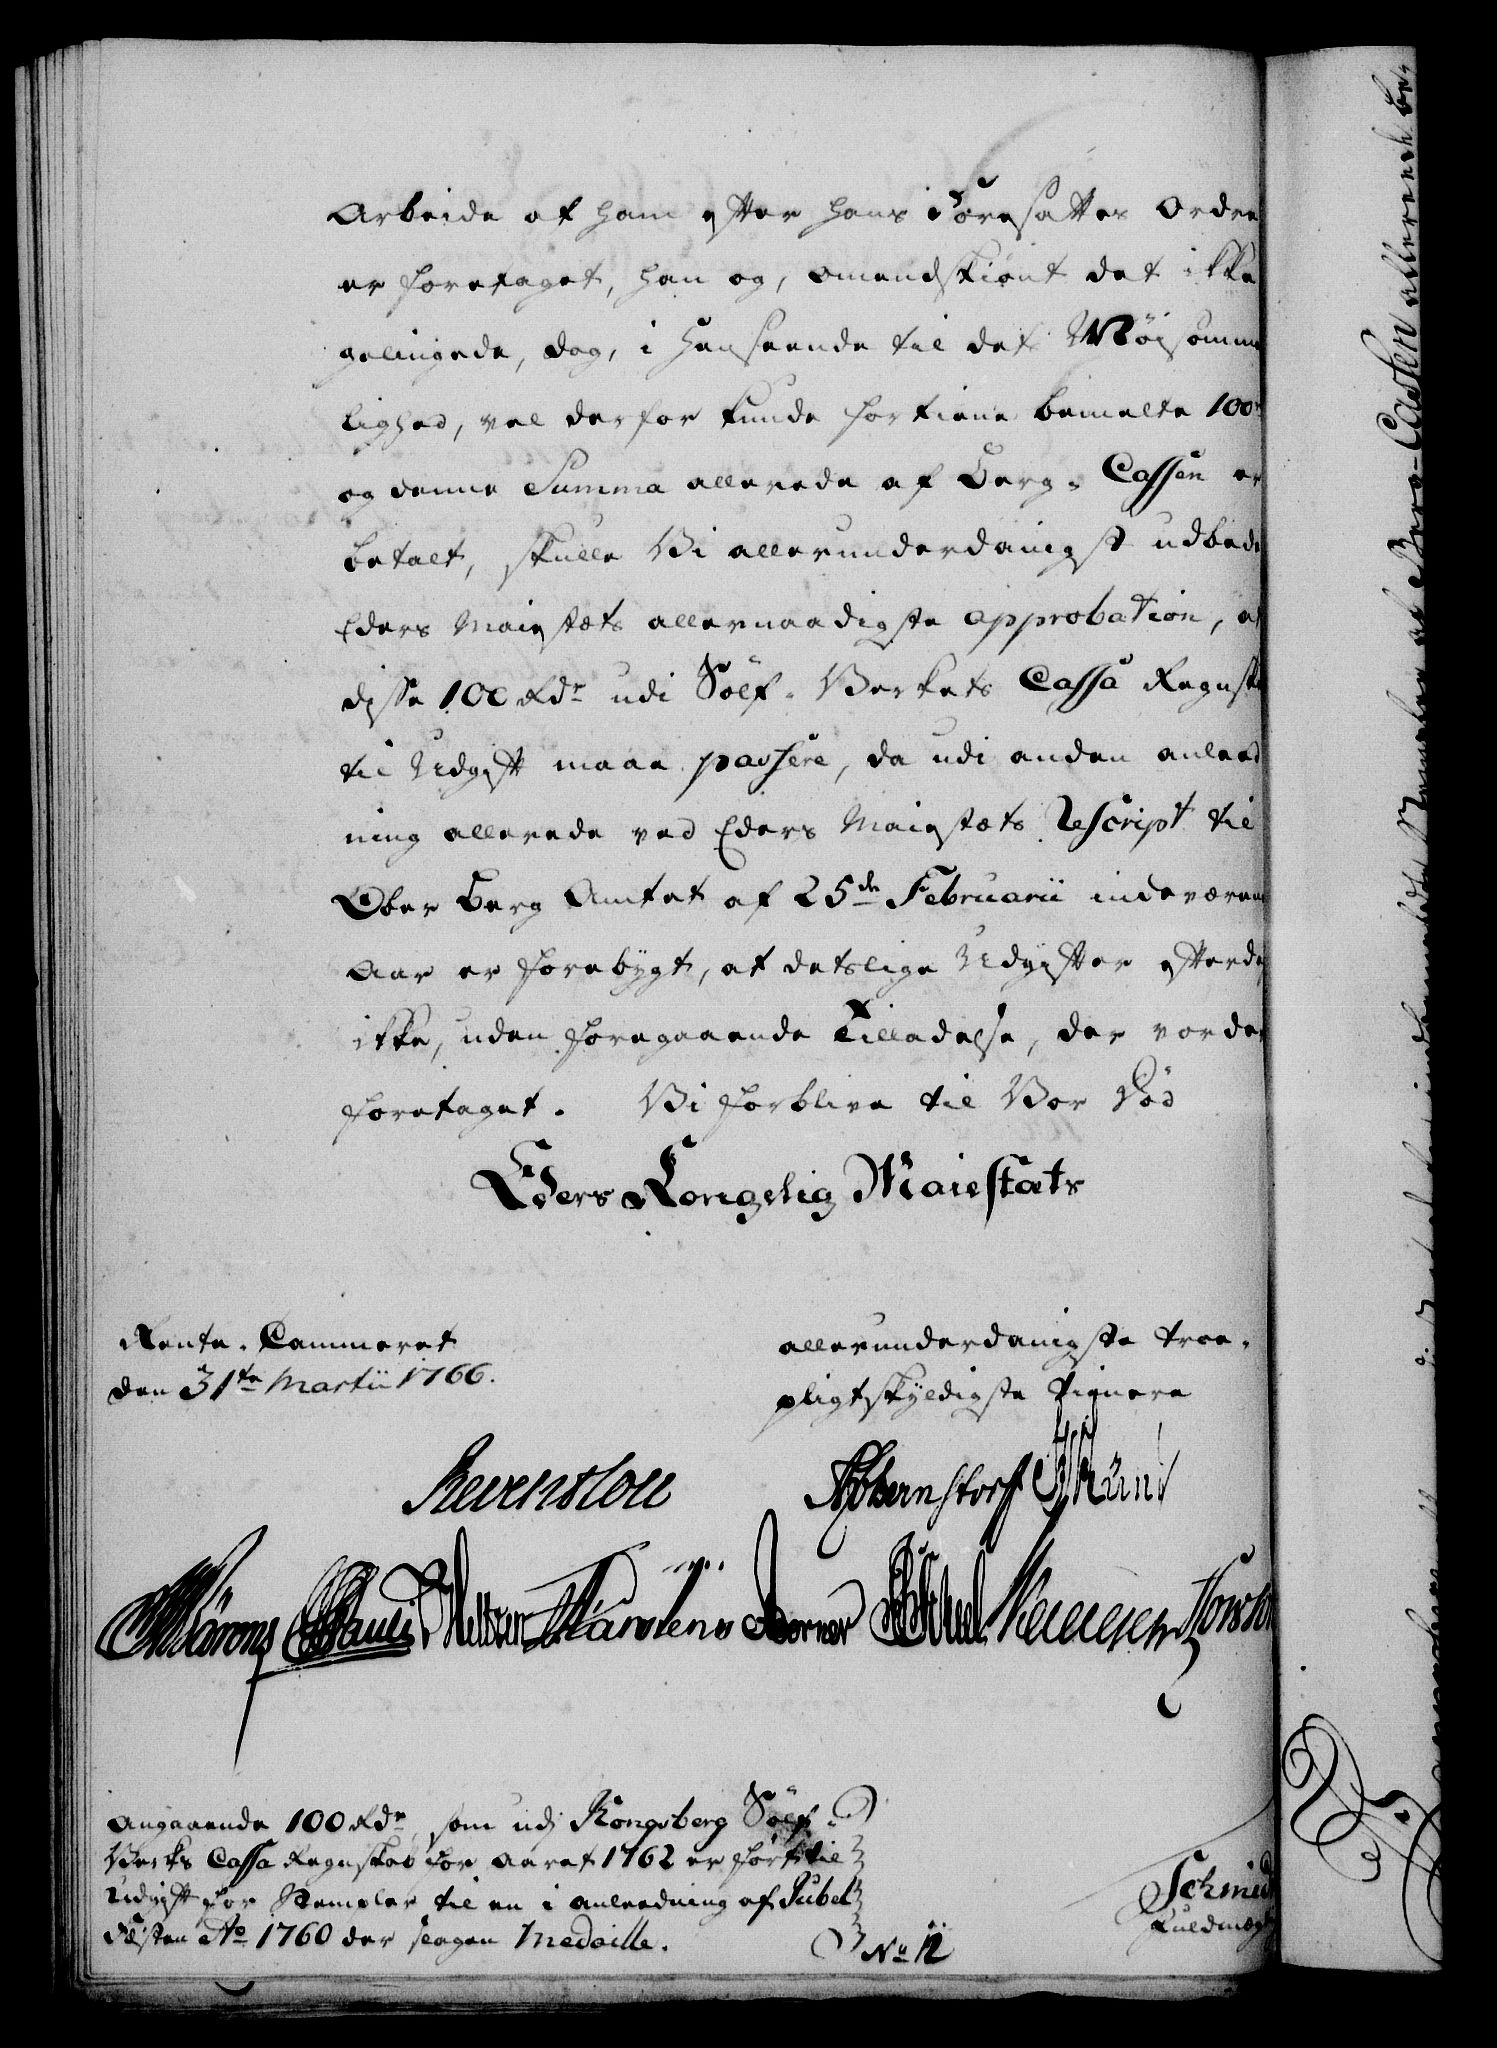 Arbeide af ham efter hans Foresattes Ordre
er foretaget, han og, omendskiønt det ikke
gelingede, dog, i Henseende til det Møisomme
lighed, vel derfor kunde fortiene bemelte 100
og denne Summa allerede af Berg-Cassen er
betalt, skulle Vi allerunderdanigst udbede
Eders Maiestæts allernaadigste approbation, at
disse 100 Rdr udi Sølf-Verkets Cassa Regnsk
til Udgift maae passere, da udi anden anleed
ning allerede ved Eders Maiestæts Rescript til
Ober Berg Amtet af 25de Februarii indeværend
Aar er forebygt, at detslige Udgifter efterde
ikke, uden foregaaende Tilladelse, der vorder
foretaget. Vi forblive til Vor Død
Eders Kongelig Maiestæts
Rente-Cammeret
den 31te Martii 1766.
allerunderdanigste troe-
pligtskyldigste Tienere
Reventlou
Bernstorff
Pauli Meltzer Karstens Berner
Angaaende 100 Rdr, som udi Kongsberg Sølf-
Verks Cassa Regnskab for Aaret 1762 er ført til
Udgift for Stempler til en i anleedning af Jubel
Festen Ao 1760 der slagen Medaille.
No 12
Schmidt
Fuldmægt